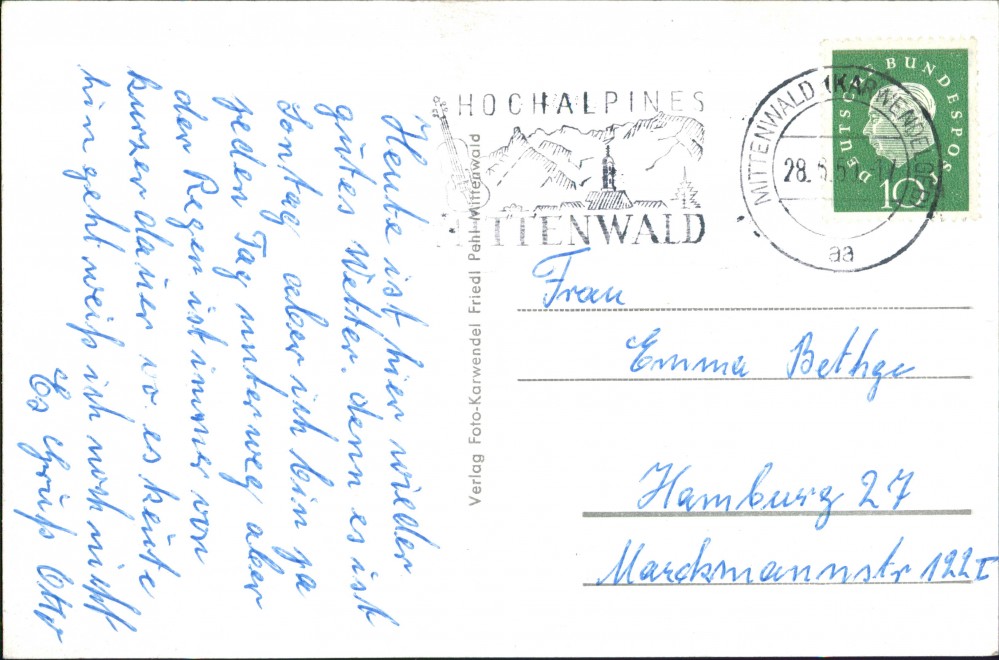 Heute ist hier wieder
gutes Wetter. denn es ist
Sontag aber ich bin ja
jeden Tag unterweg aber
der Regen ist immer von
kurzer dauer wo es heute
hin geht weiß ich noch nicht
Es Grüß Otto
Verlag Foto-Karwendel Friedl Pehl Mittenwald
HOCHALPINES
MITTENWALD
MITTENWALD (KARWENDEL)
28. 6.
aa
DEUTSCHE BUNDESPOST
10
Frau
Emma Bethge
Hamburg 27
Marckmannstr 122 I